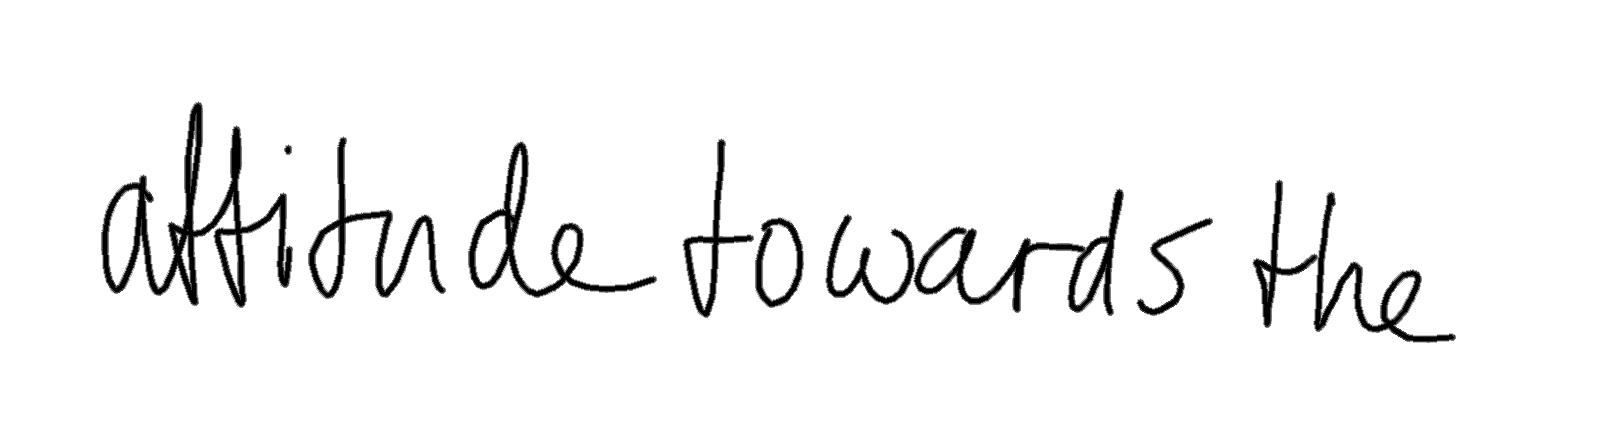 attitude towards the